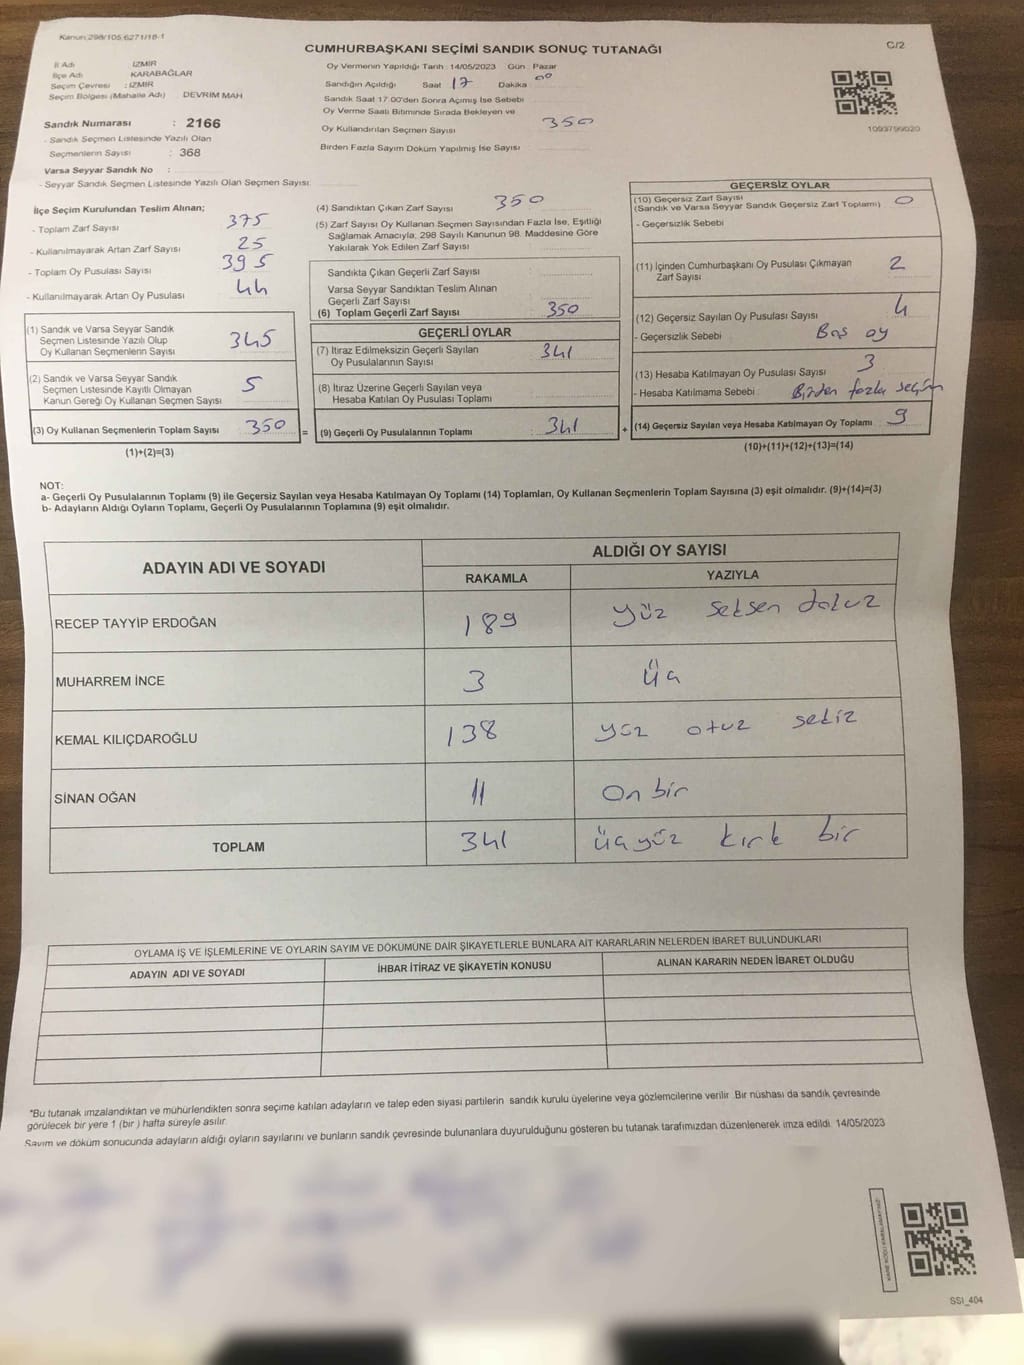 Kanun:298/105,6271/18-1
C/2
CUMHURBAŞKANI SEÇİMİ SANDIK SONUÇ TUTANAĞI
İl Adı İZMİR
İlçe Adı KARABAĞLAR
Seçim Çevresi : İZMİR
Seçim Bölgesi (Mahalle Adı) DEVRİM MAH
Sandık Numarası : 2166
- Sandık Seçmen Listesinde Yazılı Olan
Seçmenlerin Sayısı : 368
Varsa Seyyar Sandık No :
- Seyyar Sandık Seçmen Listesinde Yazılı Olan Seçmen Sayısı:
Oy Vermenin Yapıldığı Tarih : 14/05/2023 Gün : Pazar
Sandığın Açıldığı Saat 17 Dakika 00
Sandık Saat 17.00'den Sonra Açımış İse Sebebi
Oy Verme Saati Bitiminde Sırada Bekleyen ve
Oy Kullandırılan Seçmen Sayısı 350
Birden Fazla Sayım Döküm Yapılmış İse Sayısı
1093799020
İlçe Seçim Kurulundan Teslim Alınan;
- Toplam Zarf Sayısı 375
- Kullanılmayarak Artan Zarf Sayısı 25
- Toplam Oy Pusulası Sayısı 395
- Kullanılmayarak Artan Oy Pusulası 44
(1) Sandık ve Varsa Seyyar Sandık
Seçmen Listesinde Yazılı Olup
Oy Kullanan Seçmenlerin Sayısı 345
(2) Sandık ve Varsa Seyyar Sandık
Seçmen Listesinde Kayıtlı Olmayan
Kanun Gereği Oy Kullanan Seçmen Sayısı 5
(3) Oy Kullanan Seçmenlerin Toplam Sayısı 350 =
(1)+(2)=(3)
(4) Sandıktan Çıkan Zarf Sayısı 350
(5) Zarf Sayısı Oy Kullanan Seçmen Sayısından Fazla İse, Eşitliği
Sağlamak Amacıyla, 298 Sayılı Kanunun 98. Maddesine Göre
Yakılarak Yok Edilen Zarf Sayısı
Sandıkta Çıkan Geçerli Zarf Sayısı
Varsa Seyyar Sandıktan Teslim Alınan
Geçerli Zarf Sayısı
(6) Toplam Geçerli Zarf Sayısı 350
GEÇERLİ OYLAR
(7) İtiraz Edilmeksizin Geçerli Sayılan
Oy Pusulalarının Sayısı 341
(8) İtiraz Üzerine Geçerli Sayılan veya
Hesaba Katılan Oy Pusulası Toplamı
(9) Geçerli Oy Pusulalarının Toplamı : 341 +
GEÇERSİZ OYLAR
(10) Geçersiz Zarf Sayısı
(Sandık ve Varsa Seyyar Sandık Geçersiz Zarf Toplamı) 0
- Geçersizlik Sebebi
(11) İçinden Cumhurbaşkanı Oy Pusulası Çıkmayan
Zarf Sayısı 2
(12) Geçersiz Sayılan Oy Pusulası Sayısı 4
- Geçersizlik Sebebi Boş oy
(13) Hesaba Katılmayan Oy Pusulası Sayısı 3
- Hesaba Katılmama Sebebi Birden fazla seçim
(14) Geçersiz Sayılan veya Hesaba Katılmayan Oy Toplamı 9
(10)+(11)+(12)+(13)=(14)
NOT:
a- Geçerli Oy Pusulalarının Toplamı (9) ile Geçersiz Sayılan veya Hesaba Katılmayan Oy Toplamı (14) Toplamları, Oy Kullanan Seçmenlerin Toplam Sayısına (3) eşit olmalıdır. (9)+(14)=(3)
b- Adayların Aldığı Oyların Toplamı, Geçerli Oy Pusulalarının Toplamına (9) eşit olmalıdır.
ADAYIN ADI VE SOYADI ALDIĞI OY SAYISI
RAKAMLA YAZIYLA
RECEP TAYYİP ERDOĞAN 189 yüz seksen dokuz
MUHARREM İNCE 3 üç
KEMAL KILIÇDAROĞLU 138 yüz otuz sekiz
SİNAN OĞAN 11 On bir
TOPLAM 341 üçyüz kırk bir
OYLAMA İŞ VE İŞLEMLERİNE VE OYLARIN SAYIM VE DÖKÜMÜNE DAİR ŞİKAYETLERLE BUNLARA AİT KARARLARIN NELERDEN İBARET BULUNDUKLARI
ADAYIN ADI VE SOYADI İHBAR İTİRAZ VE ŞİKAYETİN KONUSU ALINAN KARARIN NEDEN İBARET OLDUĞU
*Bu tutanak imzalandıktan ve mühürlendikten sonra seçime katılan adayların ve talep eden siyasi partilerin sandık kurulu üyelerine veya gözlemcilerine verilir. Bir nüshası da sandık çevresinde
görülecek bir yere 1 (bir ) hafta süreyle asılır.
Sayım ve döküm sonucunda adayların aldığı oyların sayılarını ve bunların sandık çevresinde bulunanlara duyurulduğunu gösteren bu tutanak tarafımızdan düzenlenerek imza edildi. 14/05/2023
SSI_404